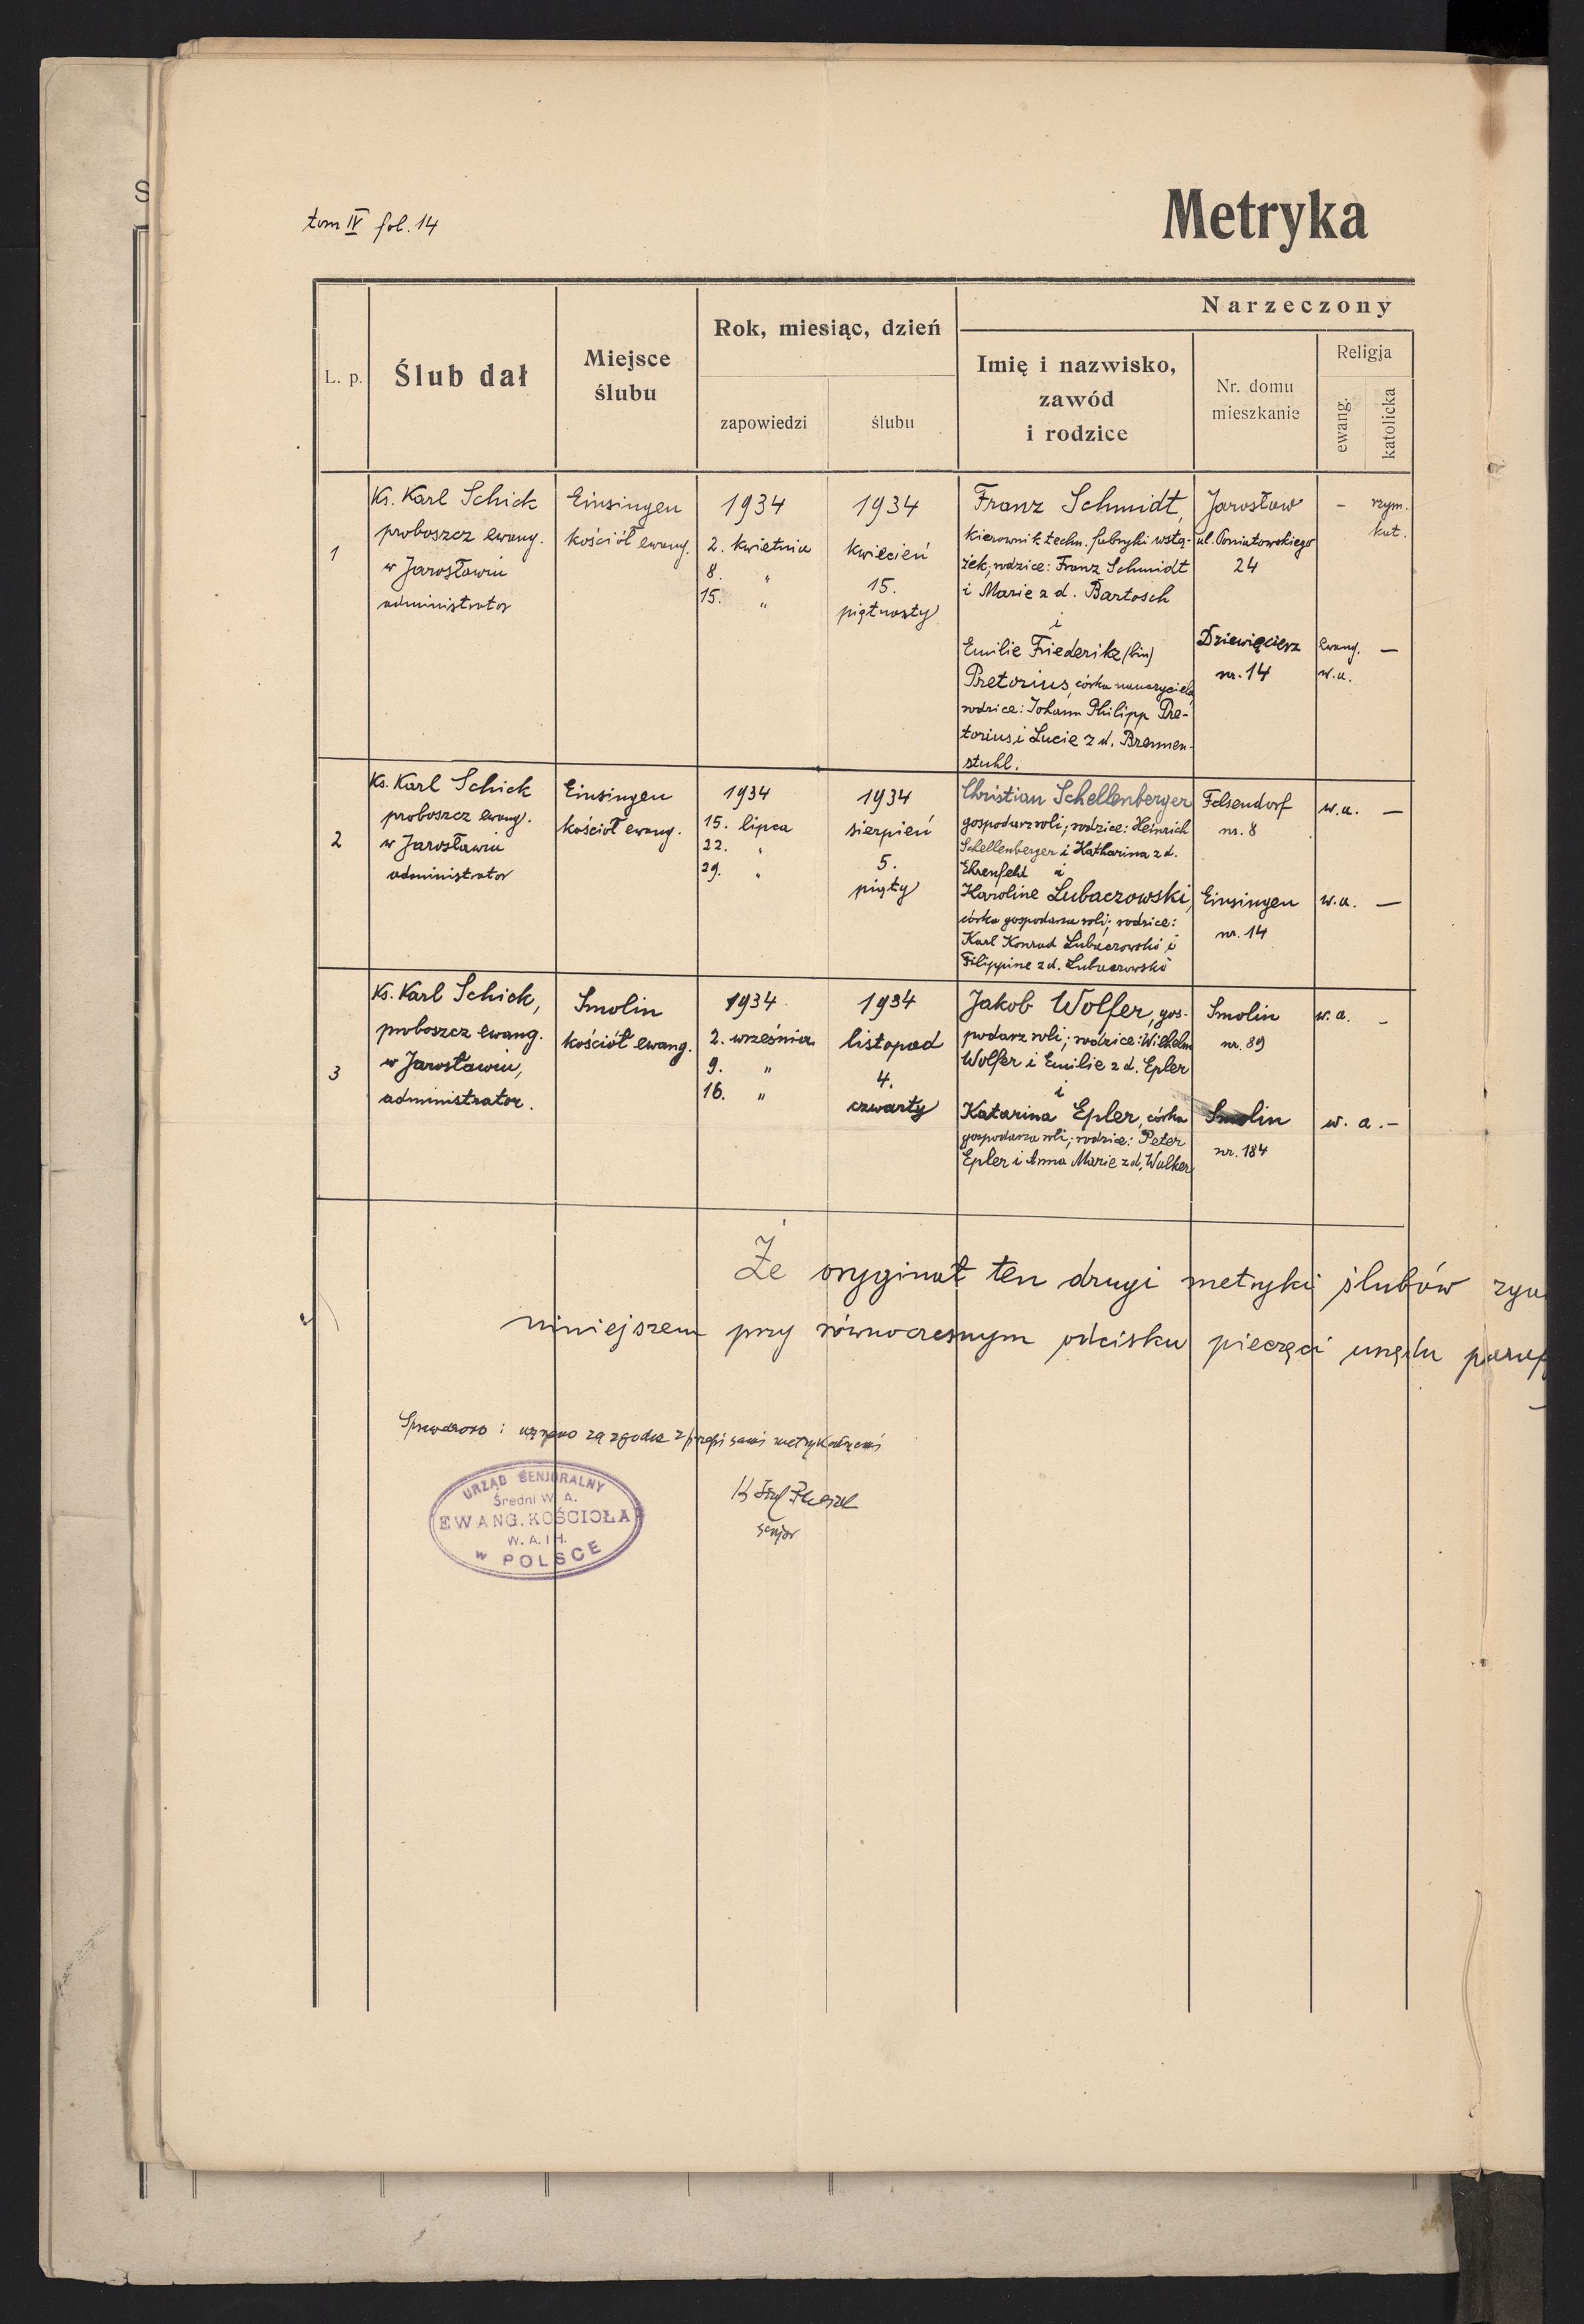 S
tom IV fol. 14
Metryka
L. p.
Ślub dał
Miejsce
ślubu
Rok, miesiąc, dzień
zapowiedzi
ślubu
Narzeczony
Imię i nazwisko,
zawód
i rodzice
Nr. domu
mieszkanie
Religja
ewang.
katolicka
1
Ks. Karl Schick
proboszcz ewang.
w Jarosławiu
administrator
Einsingen
kościół ewang.
1934
2. kwietnia
8. "
15. "
1934
kwiecień
15.
piętnasty
Franz Schmidt,
kierownik techn. fabryki wstą-
żek; rodzice: Franz Schmidt
i Marie z d. Bartosch
i
Emilie Friederike (bin)
Pretorius, córka nauczyciela
rodzice: Johann Philipp Pre-
torius i Lucie z d. Bremen-
stuhl.
Jarosław
ul. Poniatowskiego
24
Dziewięcierz
nr. 14
-
rzym.
kat.
ewang. —
w.a.
2
Ks. Karl Schick
proboszcz ewang.
w Jarosławiu
administrator
Einsingen
kościół ewang.
1934
15. lipca
22. "
29. "
1934
sierpień
5.
piąty
Christian Schellenberger
gospodarz roli; rodzice: Heinrich
Schellenberger i Katharina z d.
Ehrenfeld i
Karoline Lubaczowski,
córka gospodarza roli; rodzice:
Karl Konrad Lubaczowski i
Filippine z d. Lubaczowski
Felsendorf
nr. 8
Einsingen
nr. 14
w.a. —
w.a. —
3
Ks. Karl Schick,
proboszcz ewang.
w Jarosławiu,
administrator.
Smolin
kościół ewang.
1934
2. września
9. "
16. "
1934
listopad
4.
czwarty
Jakob Wolfer, gos-
podarz roli; rodzice: Wilhelm
Wolfer i Emilie z d. Epler
i
Katarina Epler, córka
gospodarza roli; rodzice: Peter
Epler i Anna Marie z d. Walker
Smolin
nr. 89
Smolin
nr. 184
w.a. -
w. a. -
Że oryginał ten drugi metryki ślubów
niniejszem przy równoczesnym odcisku pieczęci urzędu paraf
Sprawdzono: uznano za zgodne z przepisami metrykalnemi
senjor
URZĄD SENJORALNY
Średni W. A.
EWANG. KOŚCIOŁA
W. A. I H.
w POLSCE